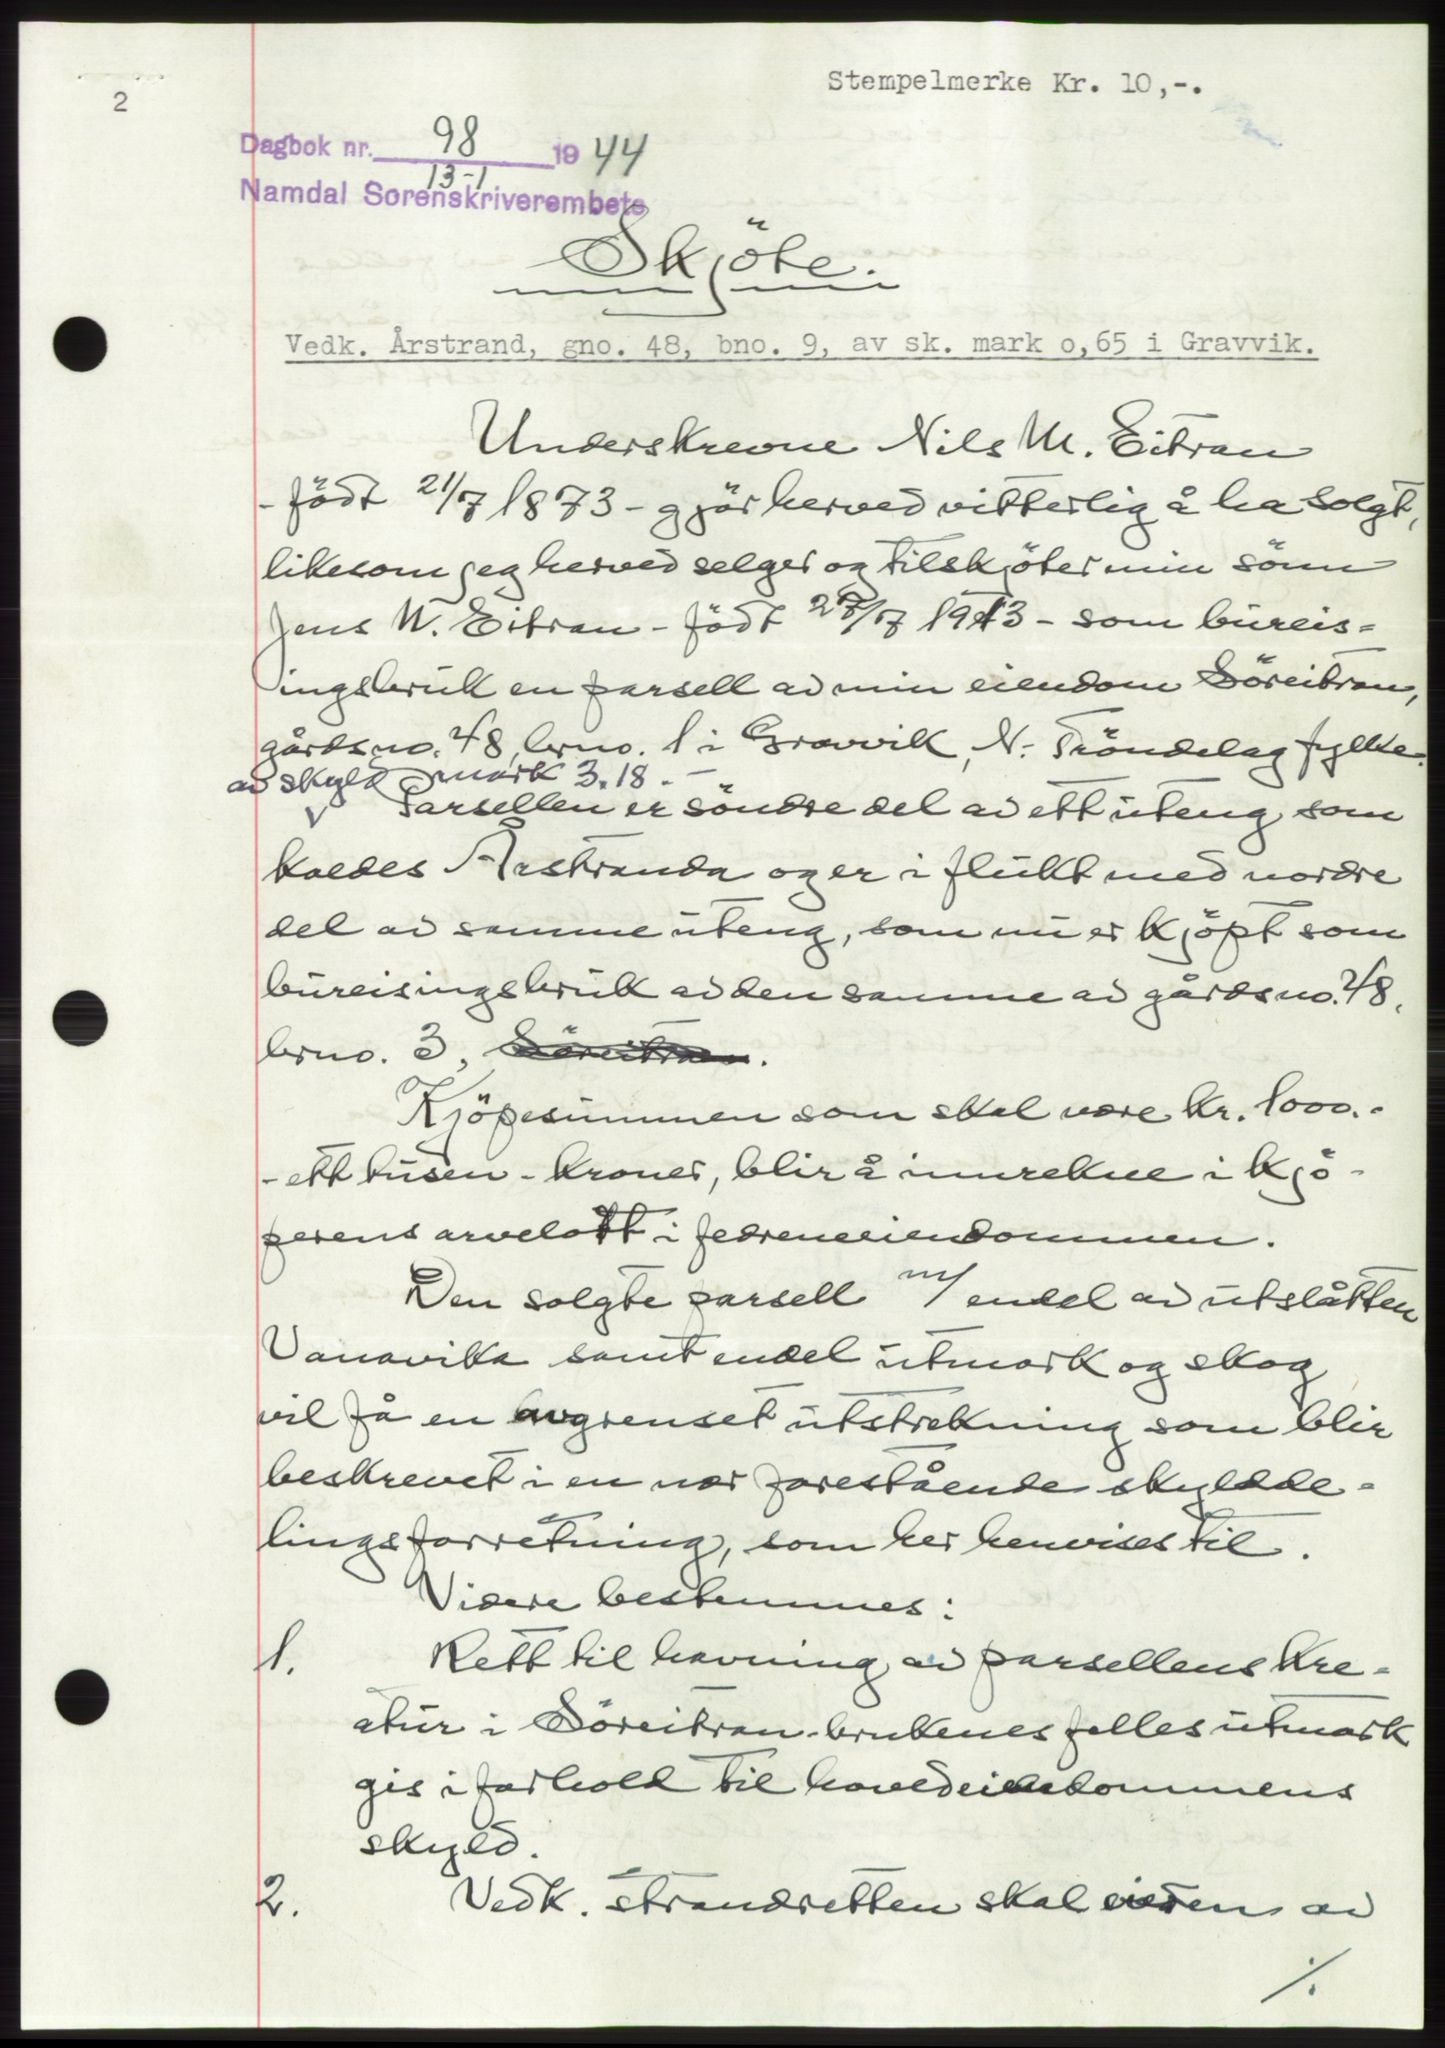 Stempelmerke Kr. 10,-.
2
Dagbok nr. 98 1944
13-1
Namdal Sorenskriverembete
Skjöte.
Vedk. Årstrand, gno. 48, bno. 9, av sk. mark o,65 i Gravvik.
Underskrevne Nils M. Eitran
- födt 21/7 1873 - gjör herved vitterlig å ha solgt,
likesom jeg herved selger og tilskjöter min sönn
Jens W. Eitran - födt 27/7 1913 - som bureis=
ingsbruk en parsell av min eiendom Söreitran,
gårdsno. 48, brno. 1 i Gravvik, N. Tröndelag fylke.
av skyld mark 3.18.-
Parsellen er söndre del av ett uteng som
kaldes Årstranda og er i flukt med nordre
del av samme uteng, som nu er kjöpt som
bureisingsbruk av den samme av gårdsno. 48,
brno. 3, Söreitran.
Kjöpesummen som skal være kr. 1000.-
- ett tusen - kroner, blir å innrekne i kjö-
perens arvelott i fedreneeiendommen.
Den solgte parsell m/ endel av utslåtten
Vanavika samt endel utmark og skog
vil få en avgrenset utstrekning som blir
beskrevet i en nær forestående skyldde=
lingsforretning, som her henvises til.
Videre bestemmes:
1. Rett til havning av parsellens kre=
atur i Söreitran-brukenes felles utmark
gis i forhold til hovedeiendommens
skyld.
2. Vedk. strandretten skal eieren av
./.